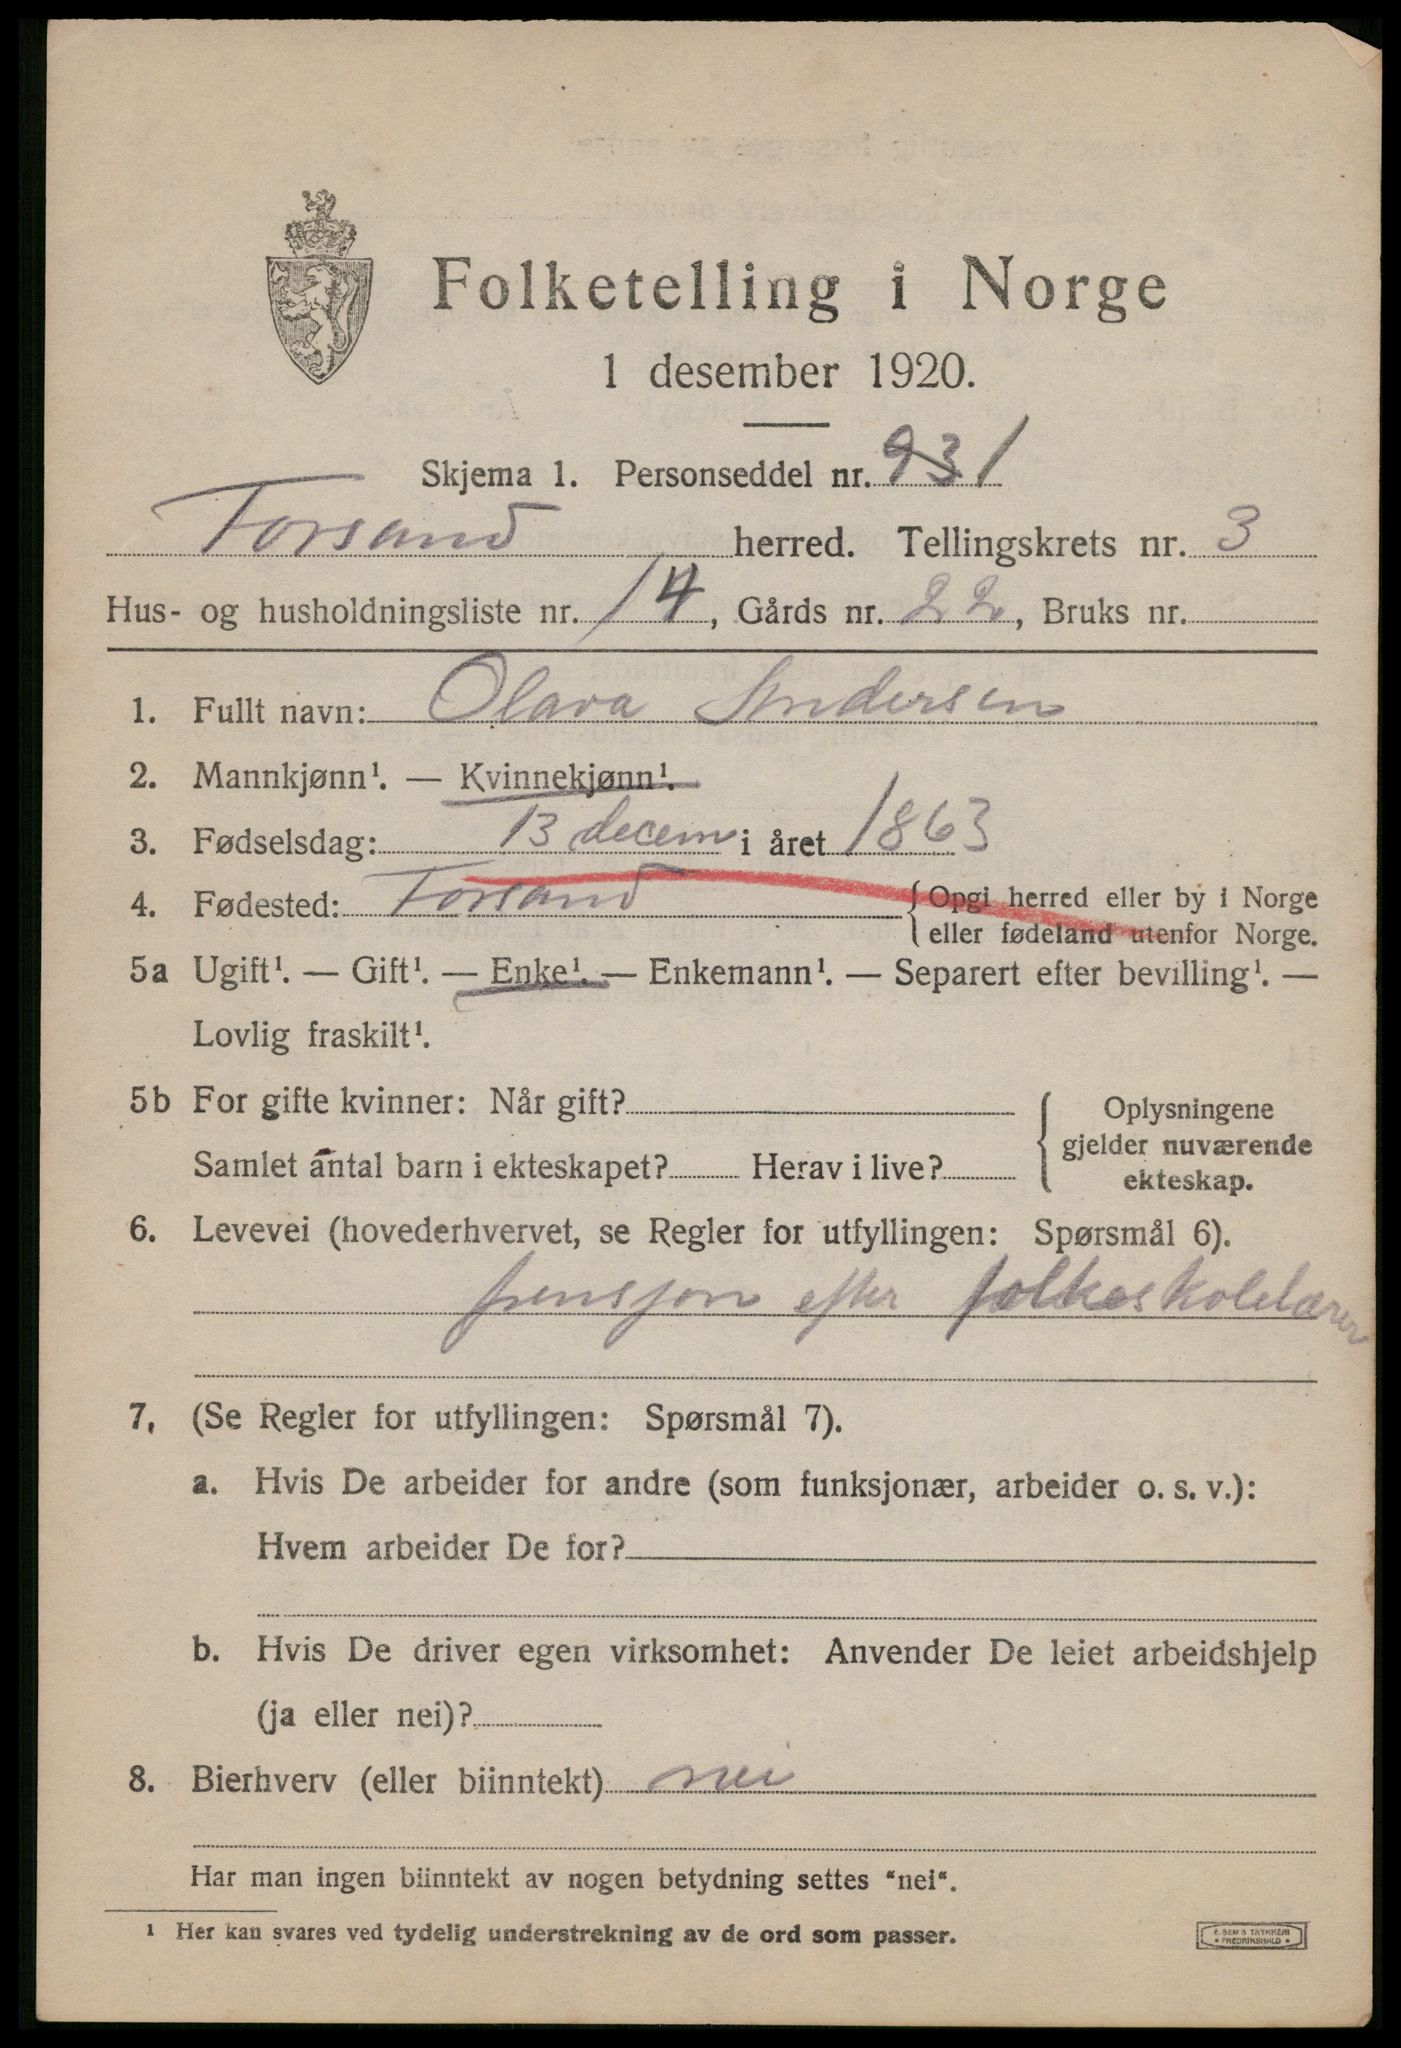 Folketelling i Norge
1 desember 1920.
Skjema 1. Personseddel nr. 931
Forsand herred. Tellingskrets nr. 3
Hus- og husholdningsliste nr. 14, Gårds nr. 22, Bruks nr.
1. Fullt navn: Olava Andersen
2. Mannkjønn¹. — Kvinnekjønn¹.
3. Fødselsdag: 13 decem i året 1863
4. Fødested: Forsand { Opgi herred eller by i Norge
eller fødeland utenfor Norge.
5a Ugift¹. — Gift¹. — Enke¹. — Enkemann¹. — Separert efter bevilling¹. —
Lovlig fraskilt¹.
5b For gifte kvinner: Når gift?
Samlet antal barn i ekteskapet? Herav i live?
{ Oplysningene
gjelder nuværende
ekteskap.
6. Levevei (hovederhvervet, se Regler for utfyllingen: Spørsmål 6).
pensjon efter folkeskolelærer
7. (Se Regler for utfyllingen: Spørsmål 7).
a. Hvis De arbeider for andre (som funksjonær, arbeider o. s. v.):
Hvem arbeider De for?
b. Hvis De driver egen virksomhet: Anvender De leiet arbeidshjelp
(ja eller nei)?
8. Bierhverv (eller biinntekt) nei
Har man ingen biinntekt av nogen betydning settes "nei".
¹ Her kan svares ved tydelig understrekning av de ord som passer.
E. SEM'S TRYKKERI
• FREDRIKSHALD •